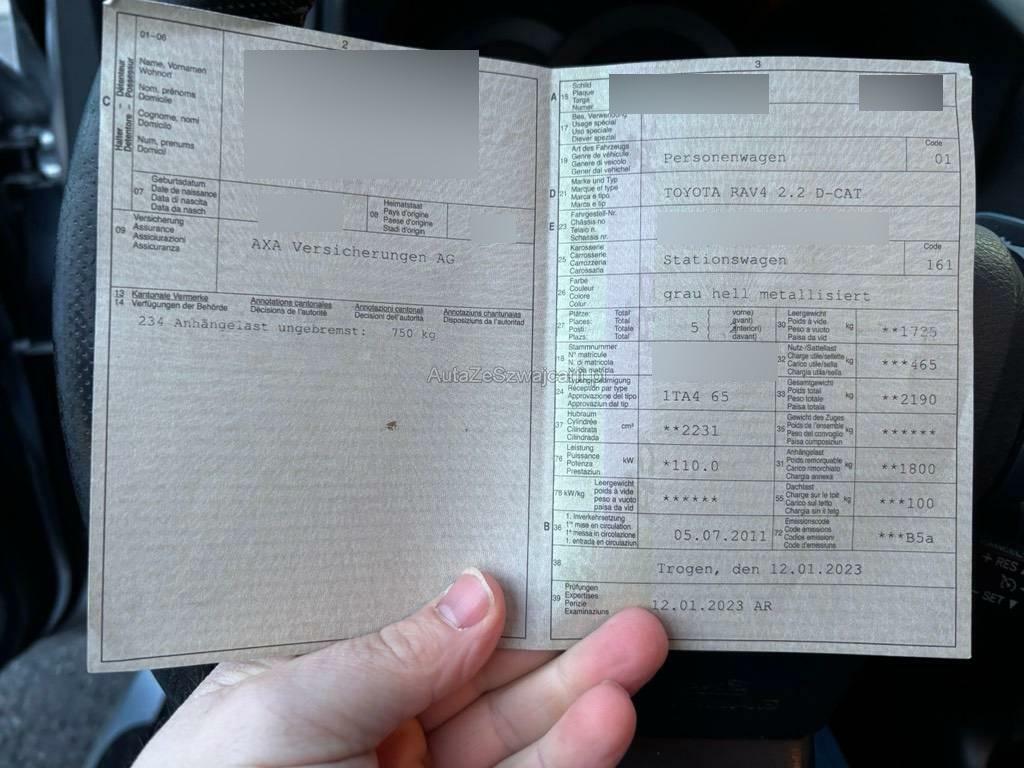 01-06
2
C
Halter
Détenteur
Detentore
Possessur
Name, Vornamen
Wohnort
Nom, prénoms
Domicile
Cognome, nomi
Domicilio
Num, prenums
Domicil
07
Geburtsdatum
Date de naissance
Data di nascita
Data da nasch
08
Heimatstaat
Pays d'origine
Paese d'origine
Stadi d'origin
09
Versicherung
Assurance
Assicurazioni
Assicuranza
AXA Versicherungen AG
13 Kantonale Vermerke
14 Verfügungen der Behörde
Annotations cantonales
Décisions de l'autorité
Annotazioni cantonali
Decisioni dell'autorità
Annotaziuns chantunalas
Disposiziuns da l'autoritad
234 Anhängelast ungebremst: 750 kg
AutaZeSzwajcarii.pl
3
A 15
Schild
Plaque
Targa
Numer
17
Bes. Verwendung
Usage spécial
Uso speciale
Diever spezial
19
Art des Fahrzeugs
Genre de véhicule
Genere di veicolo
Gener dal vehichel
Personenwagen
Code
01
D 21
Marke und Typ
Marque et type
Marca e tipo
Marca e tip
TOYOTA RAV4 2.2 D-CAT
E 23
Fahrgestell-Nr.
Châssis no
Telaio n.
Schassis nr.
25
Karosserie
Carrosserie
Carrozzeria
Carossaria
Stationswagen
Code
161
26
Farbe
Couleur
Colore
Colur
grau hell metallisiert
27
Plätze: Total
Places: Total
Posti: Totale
Plazs: Total
5
vorne)
avant)
anteriori)
davant)
30
Leergewicht
Poids à vide
Peso a vuoto
Paisa da vid
kg
**1725
18
Stammnummer
N° matricule
N. di matricola
Nr. da matricla
32
Nutz-/Sattellast
Charge utile/sellette
Carico utile/sella
Chargia utila/sella
kg
***465
24
Typengenehmigung
Réception par type
Approvazione del tipo
Approvaziun dal tip
1TA4 65
33
Gesamtgewicht
Poids total
Peso totale
Paisa totala
kg
**2190
37
Hubraum
Cylindrée
Cilindrata
Cilindrada
cm³
**2231
35
Gewicht des Zuges
Poids de l'ensemble
Peso del convoglio
Paisa cumposiziun
kg
******
76
Leistung
Puissance
Potenza
Prestaziun
kW
*110.0
31
Anhängelast
Poids remorquable
Carico rimorchiato
Chargia annexa
kg
**1800
78 kW/kg
Leergewicht
poids à vide
peso a vuoto
paisa da vid
******
55
Dachlast
Charge sur le toit
Carico sul tetto
Chargia sin il tetg
kg
***100
B 36
1. Inverkehrsetzung
1re mise en circulation
1a messa in circolazione
1. entrada en circulaziun
05.07.2011
72
Emissionscode
Code émissions
Codice emissioni
Code d'emissiuns
***B5a
38
Trogen, den 12.01.2023
39
Prüfungen
Expertises
Perizie
Examinaziuns
12.01.2023 AR
+ RES
- SET